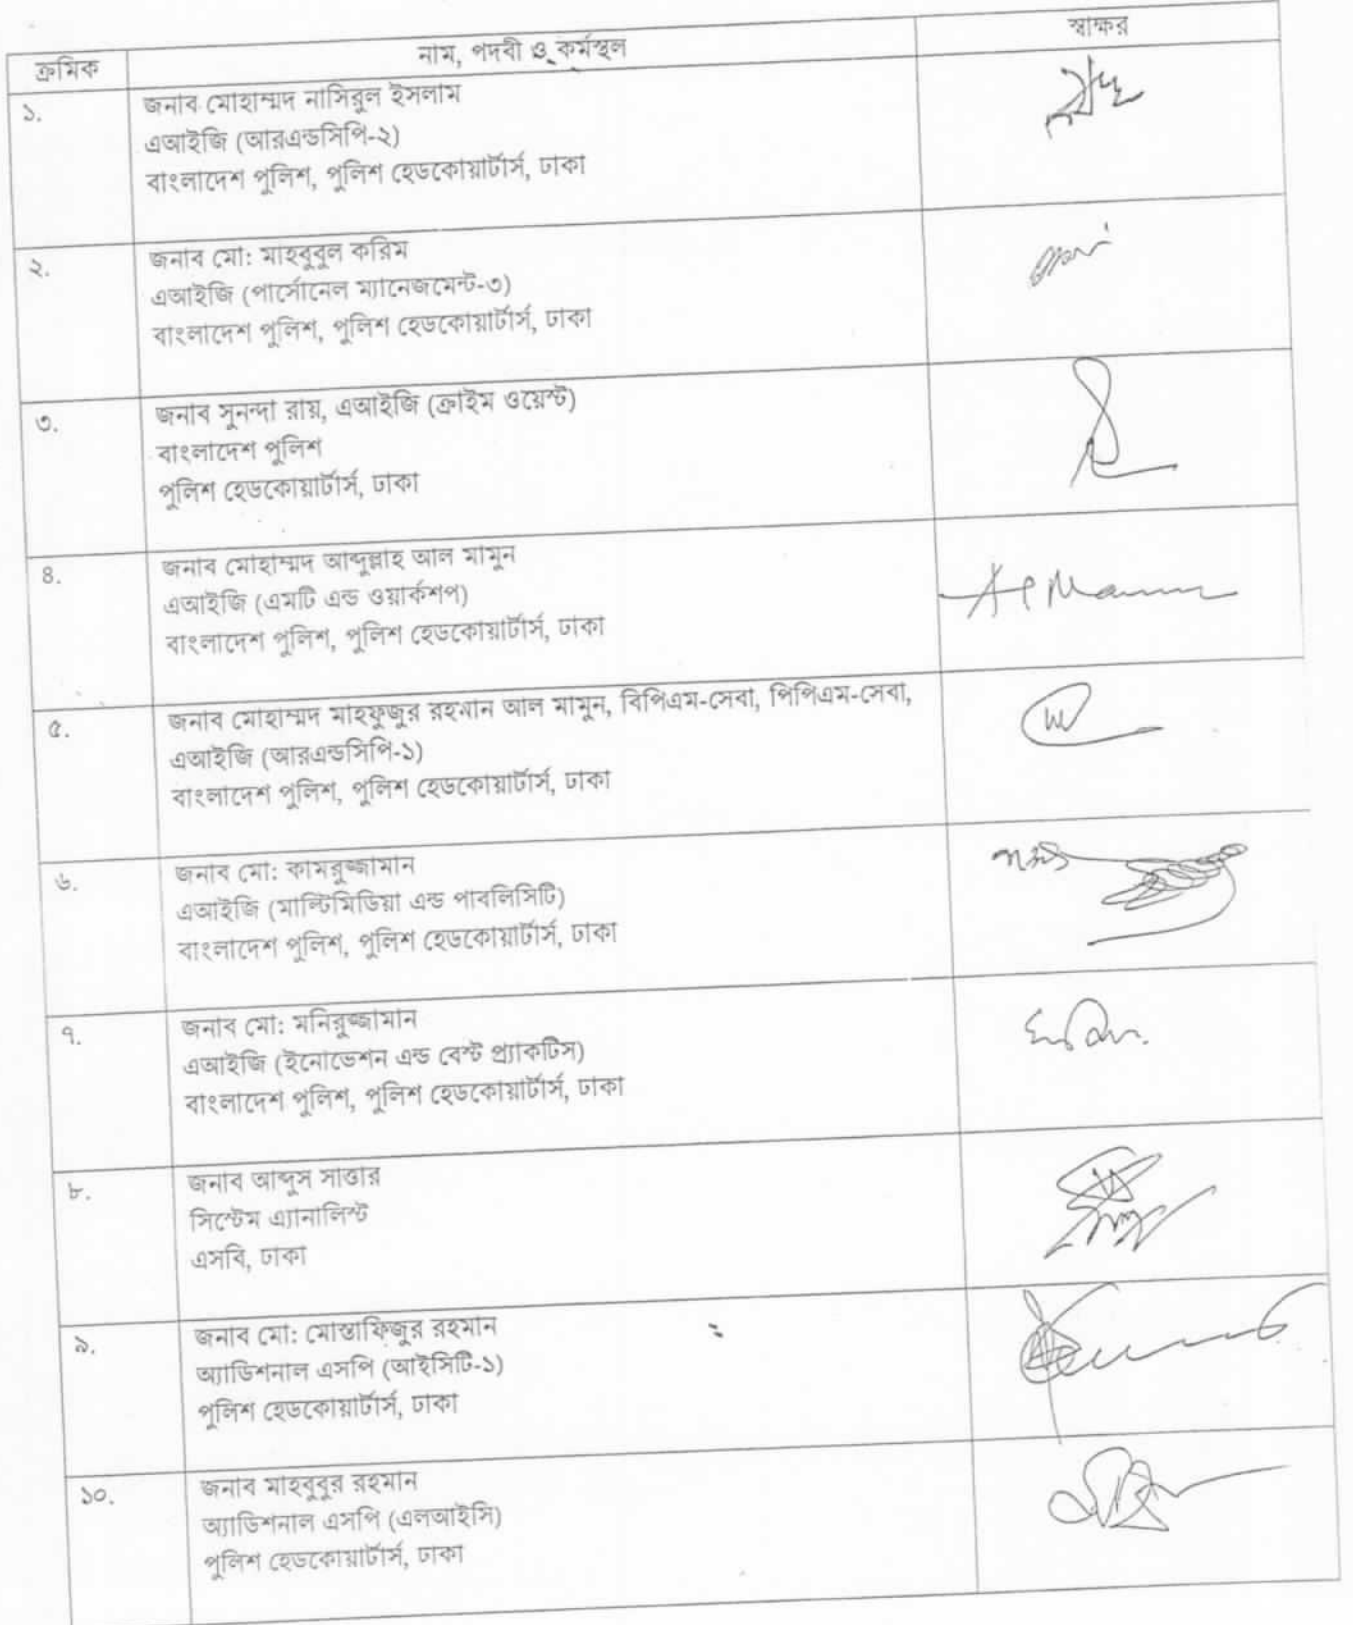 ক্রমিক নাম, পদবী ও কর্মস্থল স্বাক্ষর
১. জনাব মোহাম্মদ নাসিরুল ইসলাম
এআইজি (আরএন্ডসিপি-২)
বাংলাদেশ পুলিশ, পুলিশ হেডকোয়ার্টার্স, ঢাকা
২. জনাব মো: মাহবুবুল করিম
এআইজি (পার্সোনেল ম্যানেজমেন্ট-৩)
বাংলাদেশ পুলিশ, পুলিশ হেডকোয়ার্টার্স, ঢাকা
৩. জনাব সুনন্দা রায়, এআইজি (ক্রাইম ওয়েস্ট)
বাংলাদেশ পুলিশ
পুলিশ হেডকোয়ার্টার্স, ঢাকা
৪. জনাব মোহাম্মদ আব্দুল্লাহ আল মামুন
এআইজি (এমটি এন্ড ওয়ার্কশপ) Al Mamun
বাংলাদেশ পুলিশ, পুলিশ হেডকোয়ার্টার্স, ঢাকা
৫. জনাব মোহাম্মদ মাহফুজুর রহমান আল মামুন, বিপিএম-সেবা, পিপিএম-সেবা,
এআইজি (আরএন্ডসিপি-১)
বাংলাদেশ পুলিশ, পুলিশ হেডকোয়ার্টার্স, ঢাকা
৬. জনাব মো: কামরুজ্জামান
এআইজি (মাল্টিমিডিয়া এন্ড পাবলিসিটি)
বাংলাদেশ পুলিশ, পুলিশ হেডকোয়ার্টার্স, ঢাকা
৭. জনাব মো: মনিরুজ্জামান
এআইজি (ইনোভেশন এন্ড বেস্ট প্র্যাকটিস)
বাংলাদেশ পুলিশ, পুলিশ হেডকোয়ার্টার্স, ঢাকা
৮. জনাব আব্দুস সাত্তার
সিস্টেম এ্যানালিস্ট
এসবি, ঢাকা
৯. জনাব মো: মোস্তাফিজুর রহমান
অ্যাডিশনাল এসপি (আইসিটি-১)
পুলিশ হেডকোয়ার্টার্স, ঢাকা
১০. জনাব মাহবুবুর রহমান
অ্যাডিশনাল এসপি (এলআইসি)
পুলিশ হেডকোয়ার্টার্স, ঢাকা